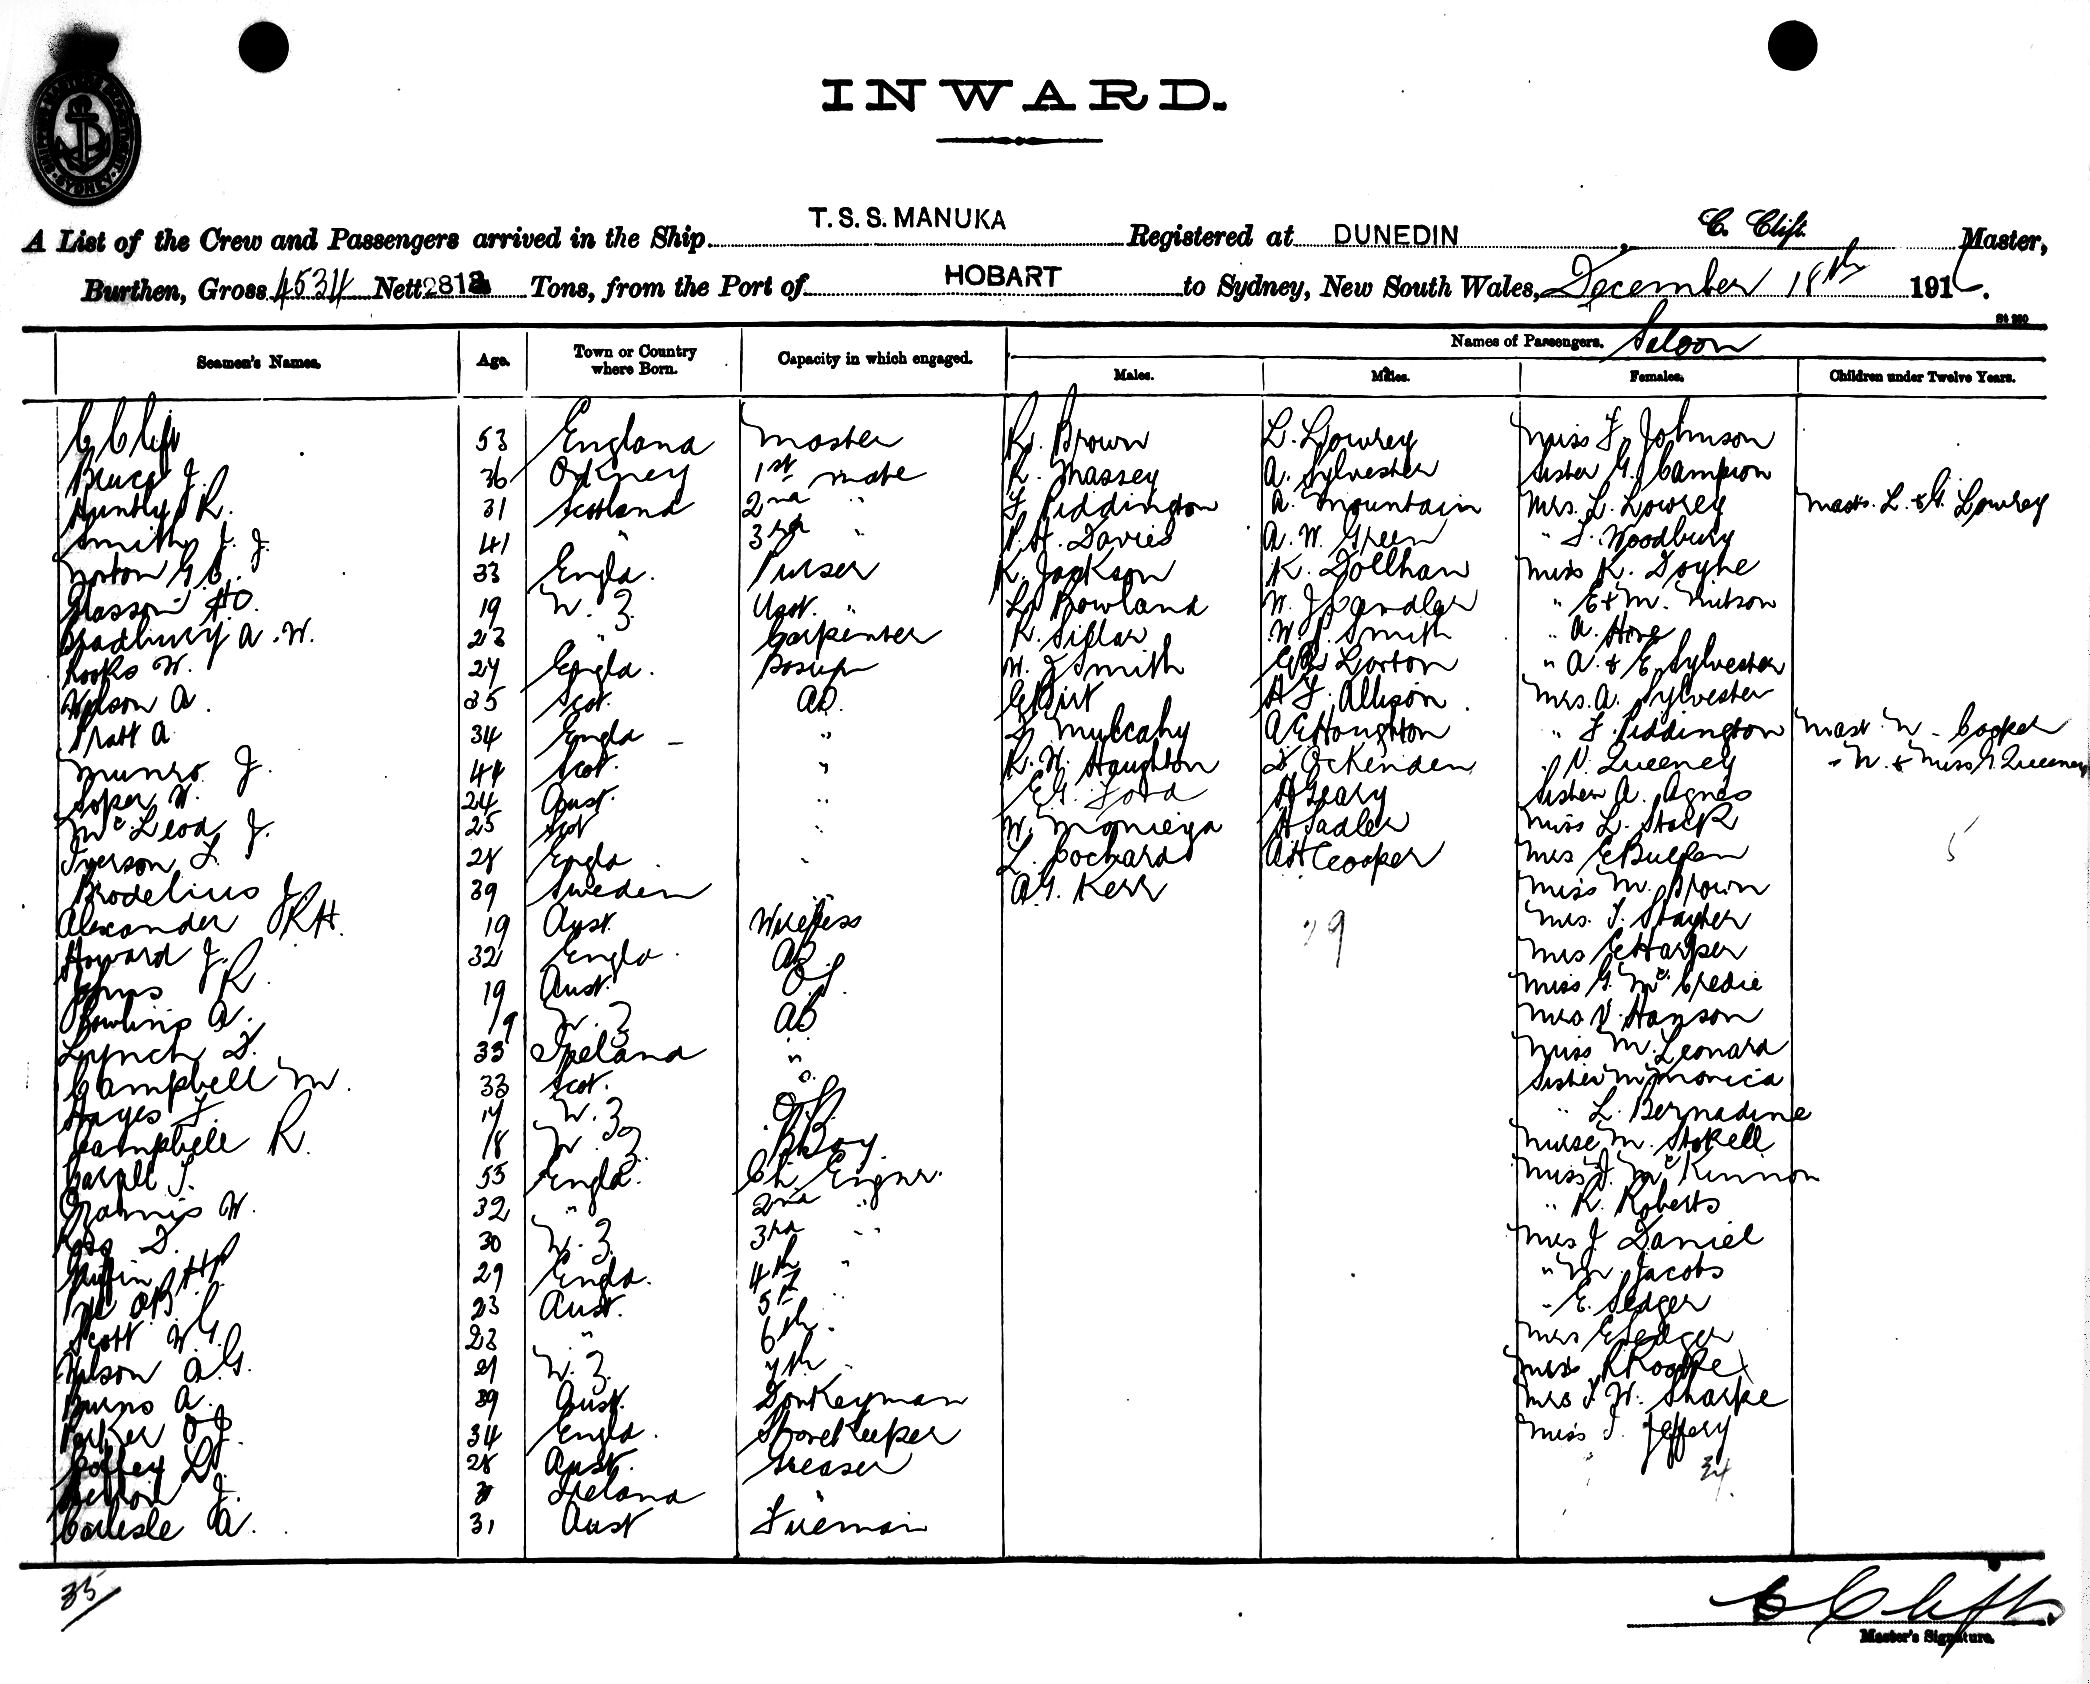 INWARD.
A List of the Crew and Passengers arrived in the Ship T.S.S. MANUKA Registered at DUNEDIN, C. Clift Master,
Burthen, Gross 4534 Nett 2818 Tons, from the Port of HOBART to Sydney, New South Wales, December 18th 191.
Names of Passengers. Saloon
Seamen's Names. Age. Town or Country where Born. Capacity in which engaged. Males. Males. Females. Children under Twelve Years.
C Clift 53 England Master R. Brown L. Lowrey Miss F. Johnson
Bruce J. 36 Orkney 1st mate R. Massey A. Sylvester Sister G. Campion
Huntly R. 31 Scotland 2nd " F Piddington A. Mountain Mrs. L. Lowrey Masts. L. & G. Lowrey
Smith J. J. 41 " 3rd " H. Davies A. W. Green " F. Woodbury
Norton G. C. 33 Engld. Purser K. Jackson K. Dollhan Miss K. Doyne
Hasson HO. 19 N. Z. Asst. " L Rowland W. J Candler " E & M. Nutson
Bradbury A. W. 23 " Carpenter R. Sillar W. S. Smith " A. Hore
Rooks W. 27 Engld. Bosun W. J Smith Lorton " A. & E. Sylvester
Wilson A. 35 Scot. AB. G Birt H F. Allison. Mrs. A. Sylvester
Pratt A 34 Engld " Mulcahy A E Houghton " F. Piddington Mast. N. Cooper
Munro J. 44 Scot. " R. W. Haughton D Ockenden " V. Queeney " N. & Miss N. Queeney
Soper W. 24 Aust. " E. G. Ford H Geary Sister A. Agnes
McLeod J. 25 Scot " W. Moniega H Sadler Miss L. Stack
Iverson L. 28 Engld " L. Cochard AH Cooper Mrs E Bulfen
Brodelius J. 39 Sweden " A. G. Kerr Miss M. Brown
Alexander R.H. 19 Aust. Wireless 29 Mrs. T. Stayner
Howard J. 32 Engld. AB Mrs E Harper
Johns R. 19 Aust. O.S. Miss G. McCredie
Rawlins A. 19 N. Z AB Mrs V. Hanson
Lynch D. 33 Ireland " Miss M. Leonard
Campbell M. 33 Scot. " Sister M Monica
Hayes F. 17 N. Z OS " L. Bernadine
Campbell R. 18 N Z. B Boy Nurse M. Stokell
Cargill T. 55 Engld. Ch. Engnr. Miss J. McKinnon
W. 32 " 2nd " " K. Roberts
Ross D. 30 N. Z. 3rd " Mrs J Daniel
29 Engld. 4th " " M. Jacobs
23 Aust. 5th " " E. Sedger
Scott W G. 23 " 6th " Mrs E Sedger
Nelson A.G. 21 N. Z. 7th " Miss R Rooke
Burns A. 39 Aust. Donkeyman Mrs T. W. Sharpe
Parker O J. 34 Engld. Storekeeper Miss T. Jeffery
Coffey D. 28 Aust. Greaser 34.
J. Ireland "
Carlisle A. 31 Aust Fireman
5
35
C Clift
Master's Signature.